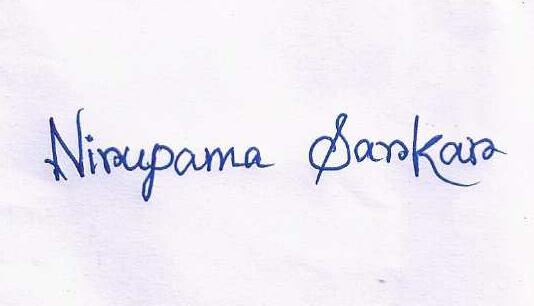 Nirupama Sarkar